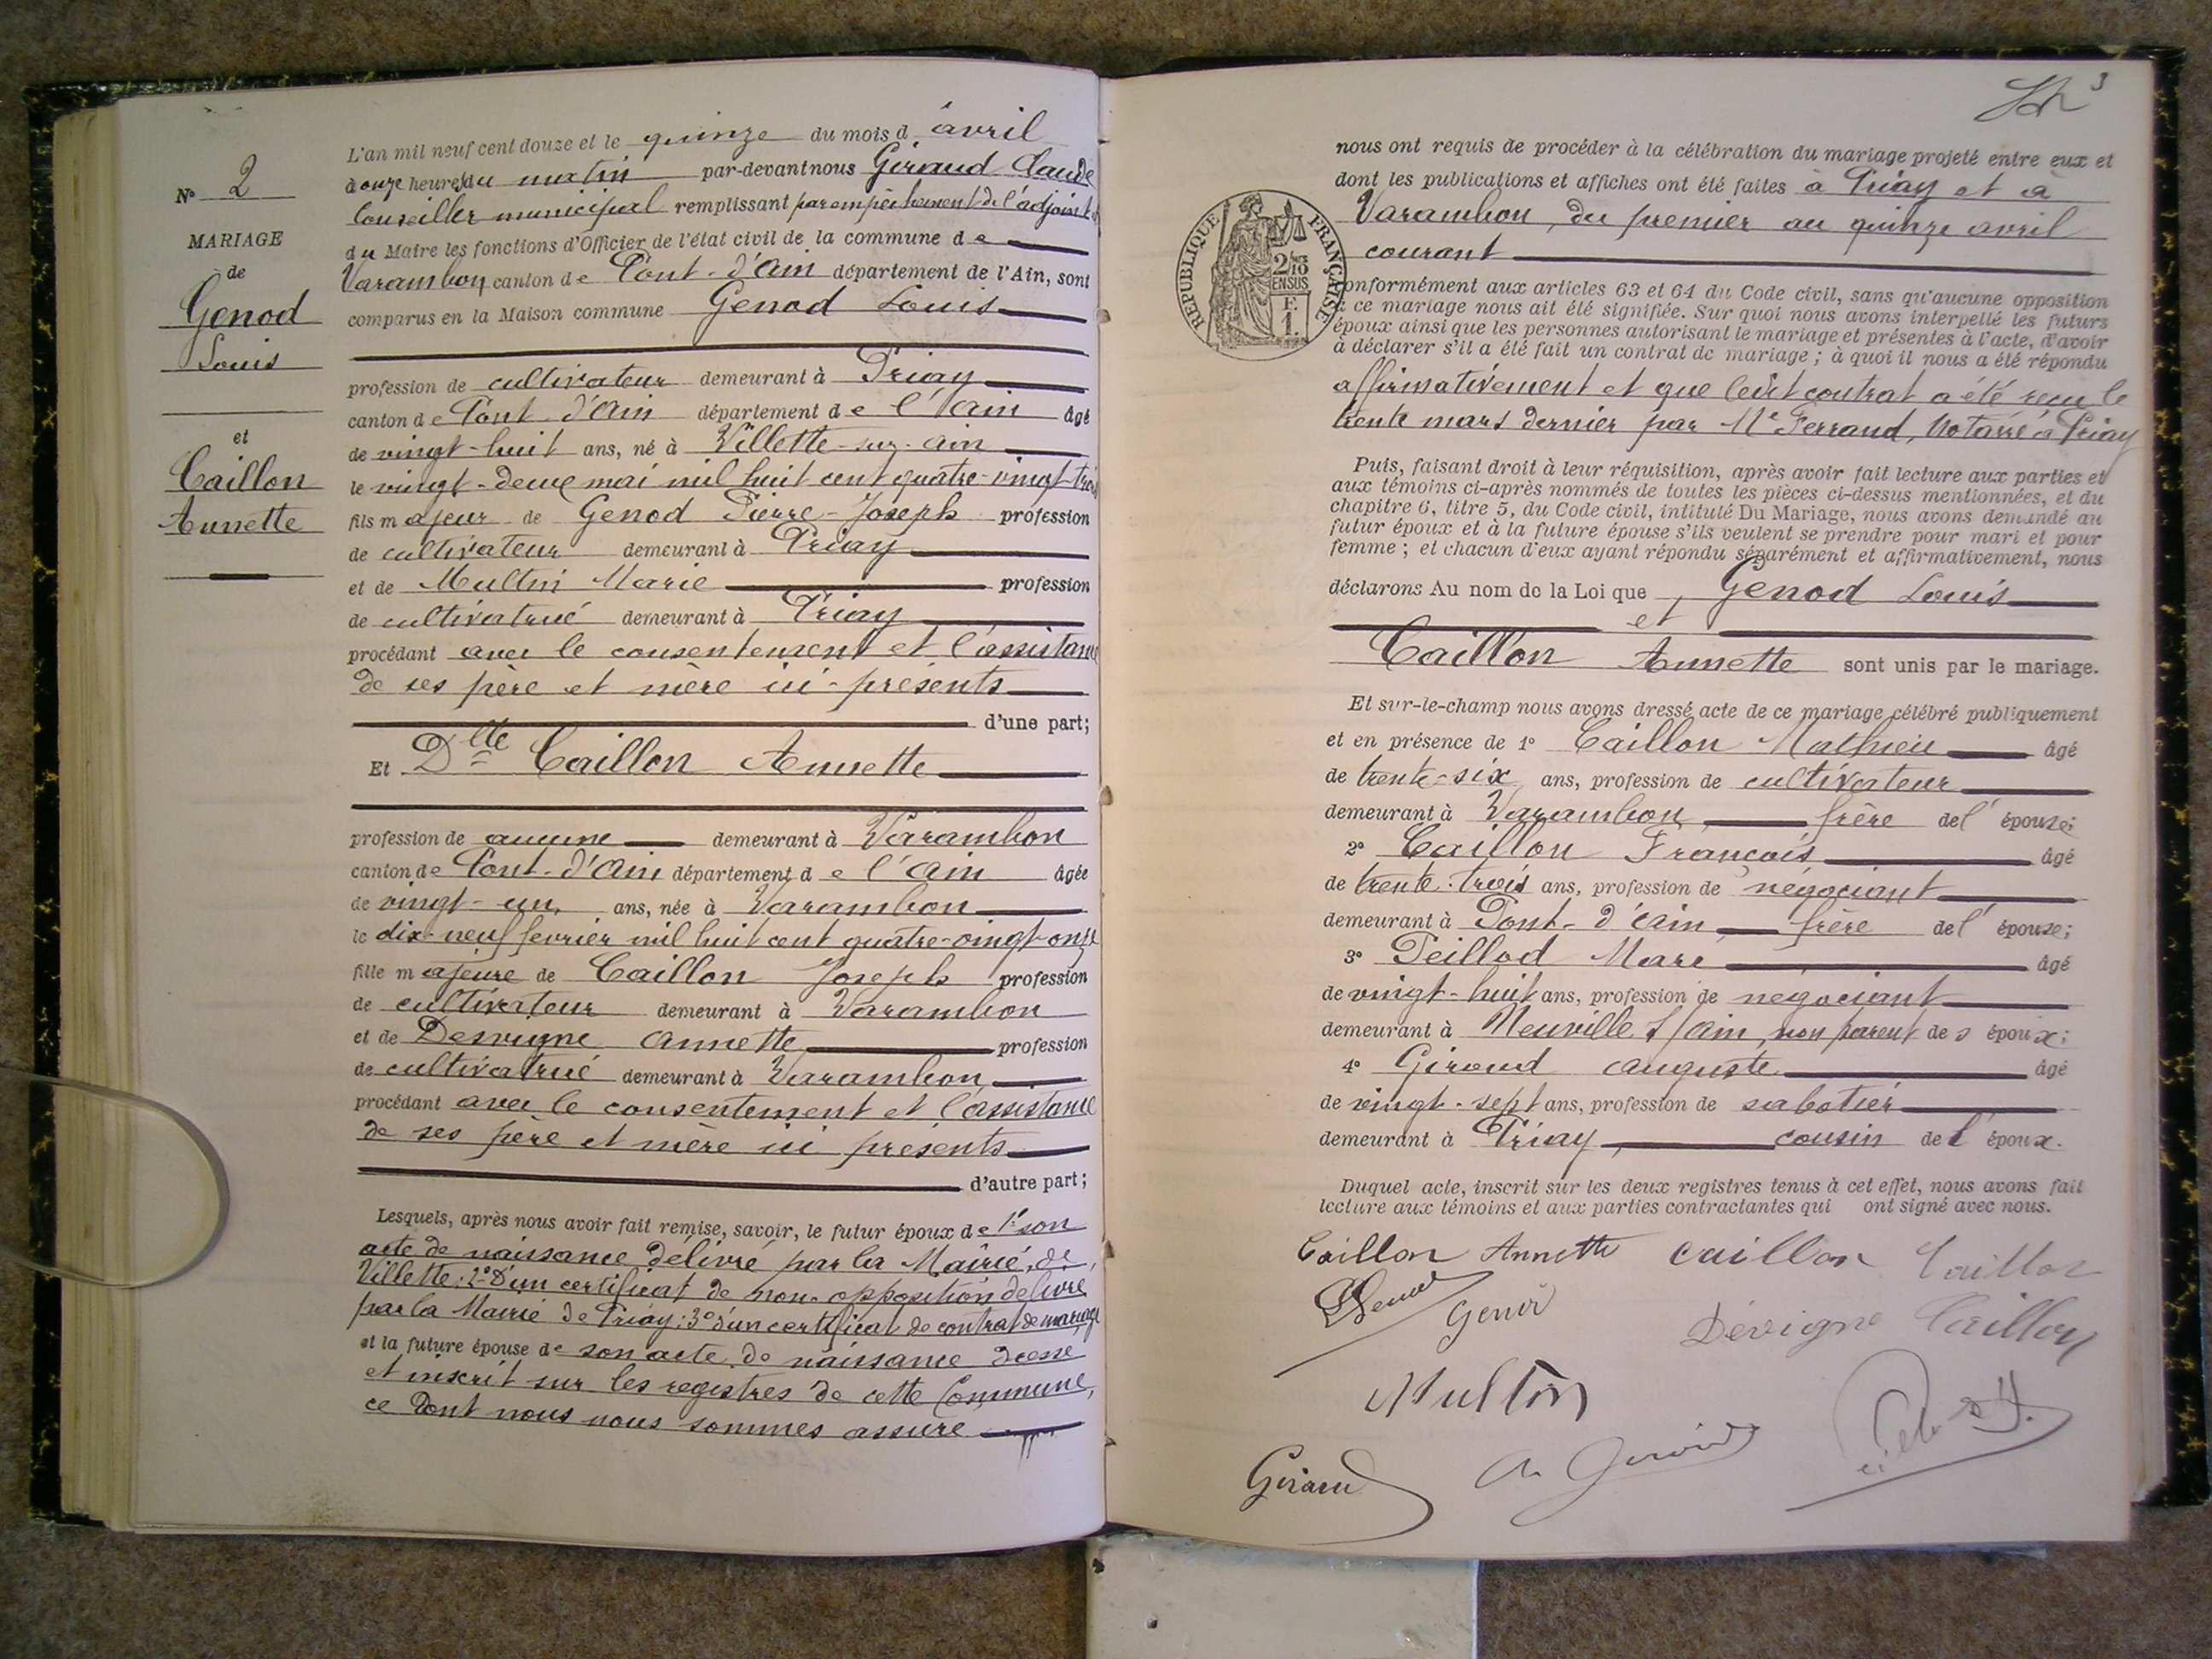 L'an mil neuf cent douze et le quinze du mois d avril
à onze heures du matin par-devant nous Giraud Claude
Conseiller municipal remplissant par empêchement de l'adjoint et
du Maire les fonctions d'Officier de l'état civil de la commune de
Varambon canton de Pont-d'Ain département de l'Ain, sont
comparus en la Maison commune Genod Louis
N° 2
MARIAGE
de
Genod
Louis
et
Caillon
Annette
profession de cultivateur demeurant à Priay
canton de Pont-d'Ain département de l'Ain âgé
de vingt-huit ans, né à Villette-sur-Ain
le vingt-deux mai mil huit cent quatre-vingt-trois
fils majeur de Genod Pierre-Joseph profession
de cultivateur demeurant à Priay
et de Multin Marie profession
de cultivatrice demeurant à Priay
procédant avec le consentement et l'assistance
de ses père et mère ici-présents
d'une part;
Et Dlle Caillon Annette
profession de aucune demeurant à Varambon
canton de Pont-d'Ain département de l'Ain âgée
de vingt-un ans, née à Varambon
le dix-neuf février mil huit cent quatre-vingt-onze
fille majeure de Caillon Joseph profession
de cultivateur demeurant à Varambon
et de Desvigne Annette profession
de cultivatrice demeurant à Varambon
procédant avec le consentement et l'assistance
de ses père et mère ici présents
d'autre part;
Lesquels, après nous avoir fait remise, savoir, le futur époux de 1° son
acte de naissance délivré par la Mairie de
Villette; 2° D'un certificat de non-opposition délivré
par la Mairie de Priay; 3° d'un certificat de contrat de mariage
et la future épouse de son acte de naissance dressé
et inscrit sur les registres de cette Commune,
ce dont nous nous sommes assuré
3
nous ont requis de procéder à la célébration du mariage projeté entre eux et
dont les publications et affiches ont été faites à Priay et à
Varambon, du premier au quinze avril
courant
RÉPUBLIQUE FRANÇAISE
2/10
EN SUS
F.
1.
conformément aux articles 63 et 64 du Code civil, sans qu'aucune opposition
à ce mariage nous ait été signifiée. Sur quoi nous avons interpellé les futurs
époux ainsi que les personnes autorisant le mariage et présentes à l'acte, d'avoir
à déclarer s'il a été fait un contrat de mariage; à quoi il nous a été répondu
affirmativement et que ledit contrat a été reçu le
trente mars dernier par Me Ferrand, Notaire à Priay
Puis, faisant droit à leur réquisition, après avoir fait lecture aux parties et
aux témoins ci-après nommés de toutes les pièces ci-dessus mentionnées, et du
chapitre 6, titre 5, du Code civil, intitulé Du Mariage, nous avons demandé au
futur époux et à la future épouse s'ils veulent se prendre pour mari et pour
femme; et chacun d'eux ayant répondu séparément et affirmativement, nous
déclarons Au nom de la Loi que Genod Louis
et
Caillon Annette sont unis par le mariage.
Et sur-le-champ nous avons dressé acte de ce mariage célébré publiquement
et en présence de 1° Caillon Mathieu âgé
de trente-six ans, profession de cultivateur
demeurant à Varambon, frère de l'épouse;
2° Caillon François âgé
de trente-trois ans, profession de négociant
demeurant à Pont-d'Ain, frère de l'épouse;
3° Peillod Marc âgé
de vingt-huit ans, profession de négociant
demeurant à Neuville s/Ain, non parent des époux;
4° Giroud Auguste âgé
de vingt-sept ans, profession de sabotier
demeurant à Priay, cousin de l'époux.
Duquel acte, inscrit sur les deux registres tenus à cet effet, nous avons fait
lecture aux témoins et aux parties contractantes qui ont signé avec nous.
Caillon Annette Caillon Caillon
Genod
Dévigne Caillon
Multin
Giraud